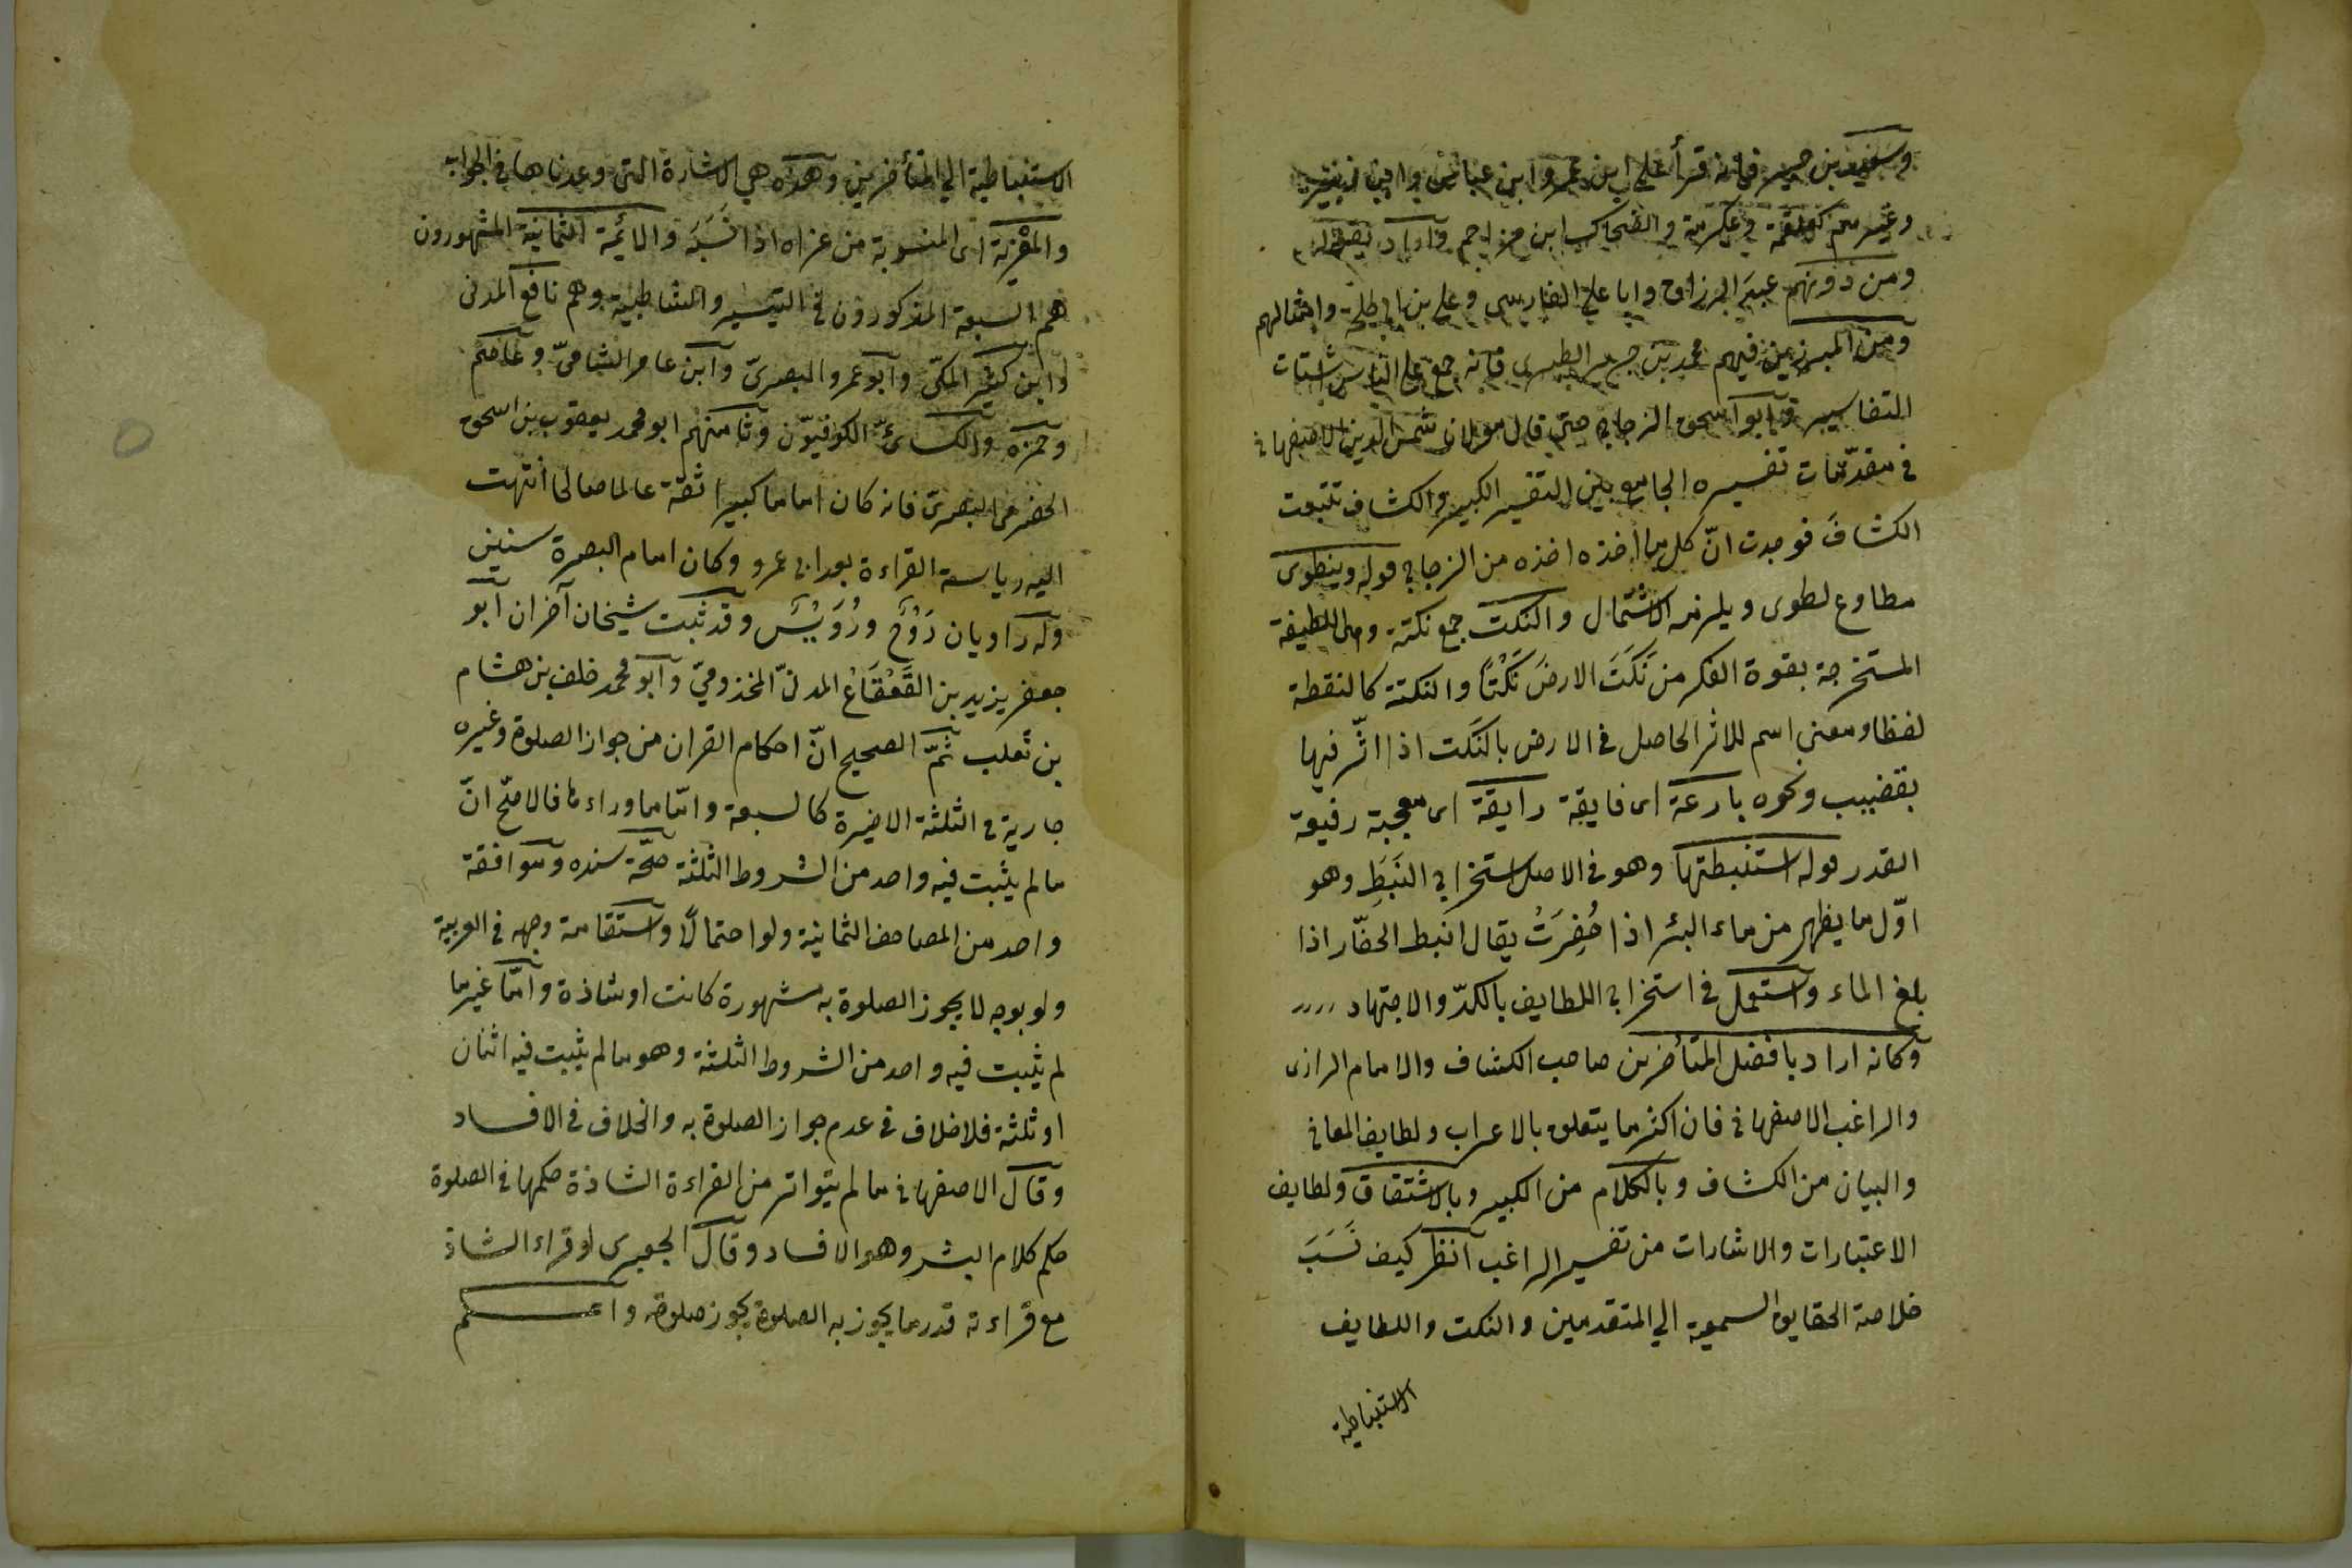 وسعيد بن جبير فانه قرأ علي ابن عمر و ابن عباس وابن زبير
وغيرهم كعلقمة و عكرمة و الضحاك ابن مزاحم وآراد بقوله
ومن دونهم عبد الرزاق وابا علي الفارسي وعلي بن ابي طلحة وامثالهم
ومن المبرزين فيهم محمد بن جرير الطبري فانه جمع علي الناس شتات
التفاسير وآبو اسحق الزجاج حتي قال مولانا شمس الدين الاصفهاني
في مقدّمات تفسيره الجامع بين التفسير الكبير والكشاف تتبعت
الكشاف فوجدت انّ كل ما اخذه اخذه من الزجاج قوله وينطوى
مطاوع لطوى ويلزمه الاشتمال والنكت جمع نكتة وهى اللطيفة
المستخرجة بقوة الفكر من نَكَتَ الارضَ نَكْتًا والنكتة كالنقطة
لفظا ومعنى اسم للاثر الحاصل في الارض بالنكت اذا اثّر فيها
بقضيب ونحوه بارعة اى فايقة رايقة اى معجبة رفيعة
القدر قوله استنبطتها وهو في الاصل استخراج النَبَطِ وهو
اوّل ما يظهر من ماء البئر اذا حُفِرَتْ يقال انبط الحفّار اذا
بلغ الماء واستعمل في استخراج اللطايف بالكدّ والاجتهاد
وكانه اراد بافضل المتأخرين صاحب الكشاف والامام الرازى
والراغب الاصفهاني فان اكثر ما يتعلق بالاعراب ولطايف المعاني
والبيان من الكشاف وبالكلام من الكبير وبالاشتقاق ولطايف
الاعتبارات والاشارات من تفسير الراغب آنظر كيف نَسَبَ
خلاصة الحقايق السمعية الي المتقدمين والنكت واللطايف
الاستنباطية
الاستنباطية الي المتأخرين وهذه هي الاشارة التي وعدناها في الجواب
والمَعْزِيّة اى المنسوبة من عزاه اذا نَسَبَه والائمة الثمانية المشهورون
هم السبعة المذكورون في التيسير والشاطبية وهم نافع المدنى
وابن كثير المكّى وآبو عمرو البصرىّ وآبن عامر الشامىّ وعاصم
وحمزة والكسائىّ الكوفيّون وثامنهم ابو محمد يعقوب بن اسحق
الحضرمى البصرىّ فانه كان اماما كبيرا ثقة عالما صالحا انتهت
اليه رياسة القراءة بعد ابى عمرو وكان امام البصرة سنين
وله راويان رَوْحٌ ورُوَيْسٌ وقد ثبت شيخان آخران آبو
جعفر يزيد بن القَعْقَاعْ المدنىّ المخذومىّ وآبو محمد خلف بن هشام
بن ثعلب ثمّ الصحيح انّ احكام القران من جواز الصلوة وغيره
جارية في الثلثة الاخيرة كالسبعة وامّا ما وراءها فالاصّح انّ
ما لم يثبت فيه واحد من الشروط الثلثة صحّة سنده وموافقة
واحد من المصاحف الثمانية ولو احتمالًا واستقامة وجهه في العربية
ولو بوجه لا يجوز الصلوة به مشهورة كانت او شاذة وامّا غير ما
لم يثبت فيه واحد من الشروط الثلثة وهو ما لم يثبت فيه اثنان
او ثلثة فلا خلاف في عدم جواز الصلوة به والخلاف في الافساد
وقال الاصفهاني ما لم يتواتر من القراءة الشاذة حكمها في الصلوة
حكم كلام البشر وهو الافساد وقال الجعبرى لو قراء الشاذ
مع قراءته قدر ما يجوز به الصلوة يجوز صلوته واعلم